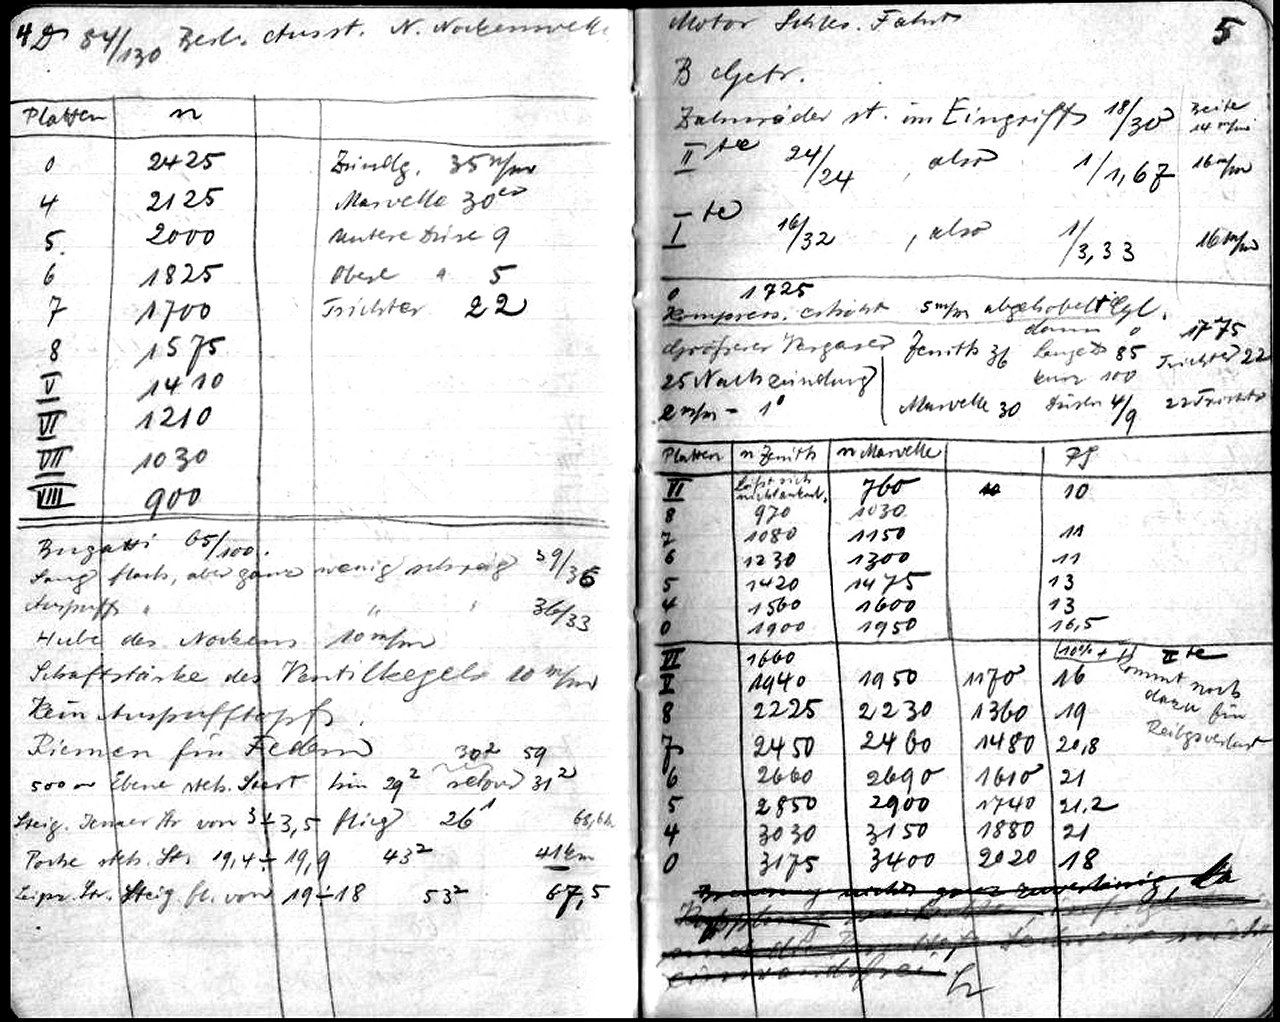 4 D 84/130 Berl. Ausst. N. Nockenwelle
Platten n
0 2425 Zündlg. 35 m/m
4 2125 Marvelle 30er
5. 2000 untere Düse 9
6 1825 Obere " 5
7 1700 Trichter 22
8 1575
V 1410
VI 1210
VII 1030
VIII 900
Bugatti 65/100.
Saug flach, aber ganz wenig schräg 39/36
Auspuff " " " 36/33
Hube des Nockens 10 m/m
Schaftstärke des Ventilkegels 10 m/m
Kein Auspufftopf.
Riemen für Federn 30² 59
500 m Ebene steh. Start hin 29² retour 31²
Steig. Jenaer Str von 3 ÷ 3,5 flieg 26¹
steh. St. 19,4 ÷ 19,9 43² 41 km
Leipz. Str. Steig. fl. von 19 ÷ 18 53² 67,5
Motor Schles. Fahrt 5
B Getr.
Zahnräder st. im Eingriff 18/30 Breite 14 m/m
II te 24/24, also 1/1,67 16 m/m
I te 16/32, also 1/3,33 16 m/m
0 1725
Kompress. erhöht 5 m/m abgehobelt Cyl.
dann 0 1775
Grösserer Vergaser Zenith 36 lange D 85 Trichter 22
kurz 100
25 Nachzündung
2 m/m = 1° Marvelle 30 Düsen 4/9 22 Trichter
Platten n Zenith n Marvelle PS
VI läßt sich nicht 760 10 10
8 970 1030
7 1080 1150 11
6 1230 1300 11
5 1420 1475 13
4 1560 1600 13
0 1900 1950 16,5
VI 1660 10% + II te
V 1940 1950 1170 16 kommt noch
8 2225 2230 1360 19 dazu für
7 2450 2460 1480 20,8 Reibgsverlust
6 2660 2690 1610 21
5 2850 2900 1740 21.2
4 3030 3150 1880 21
0 3175 3400 2020 18
Bremsung nicht ganz zuverlässig, da
einwandsfrei.